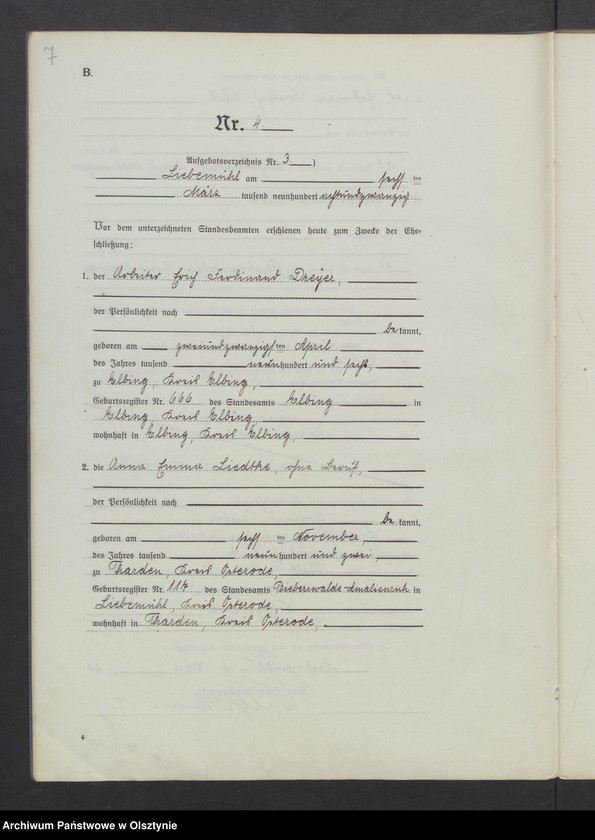 7
B.
Nr. 4
Aufgebotsverzeichnis Nr. 3 )
Liebemühl am sechsten
März tausend neunhundert achtundzwanzig
Vor dem unterzeichneten Standesbeamten erschienen heute zum Zwecke der Ehe-
schließung:
1. der Arbeiter Erich Ferdinand Dreyer,
der Persönlichkeit nach
bekannt,
geboren am zweiundzwanzigsten April
des Jahres tausend neunhundert und sechs,
zu Elbing, Kreis Elbing,
Geburtsregister Nr. 666 des Standesamts Elbing in
Elbing Kreis Elbing,
wohnhaft in Elbing, Kreis Elbing,
2. die Anna Emma Liedtke, ohne Beruf,
der Persönlichkeit nach
bekannt,
geboren am sechsten November,
des Jahres tausend neunhundert und zwei,
zu Tharden, Kreis Osterode,
Geburtsregister Nr. 117 des Standesamts Bieberswalde-Amalienruh in
Liebemühl, Kreis Osterode,
wohnhaft in Tharden, Kreis Osterode,
4
Archiwum Państwowe w Olsztynie